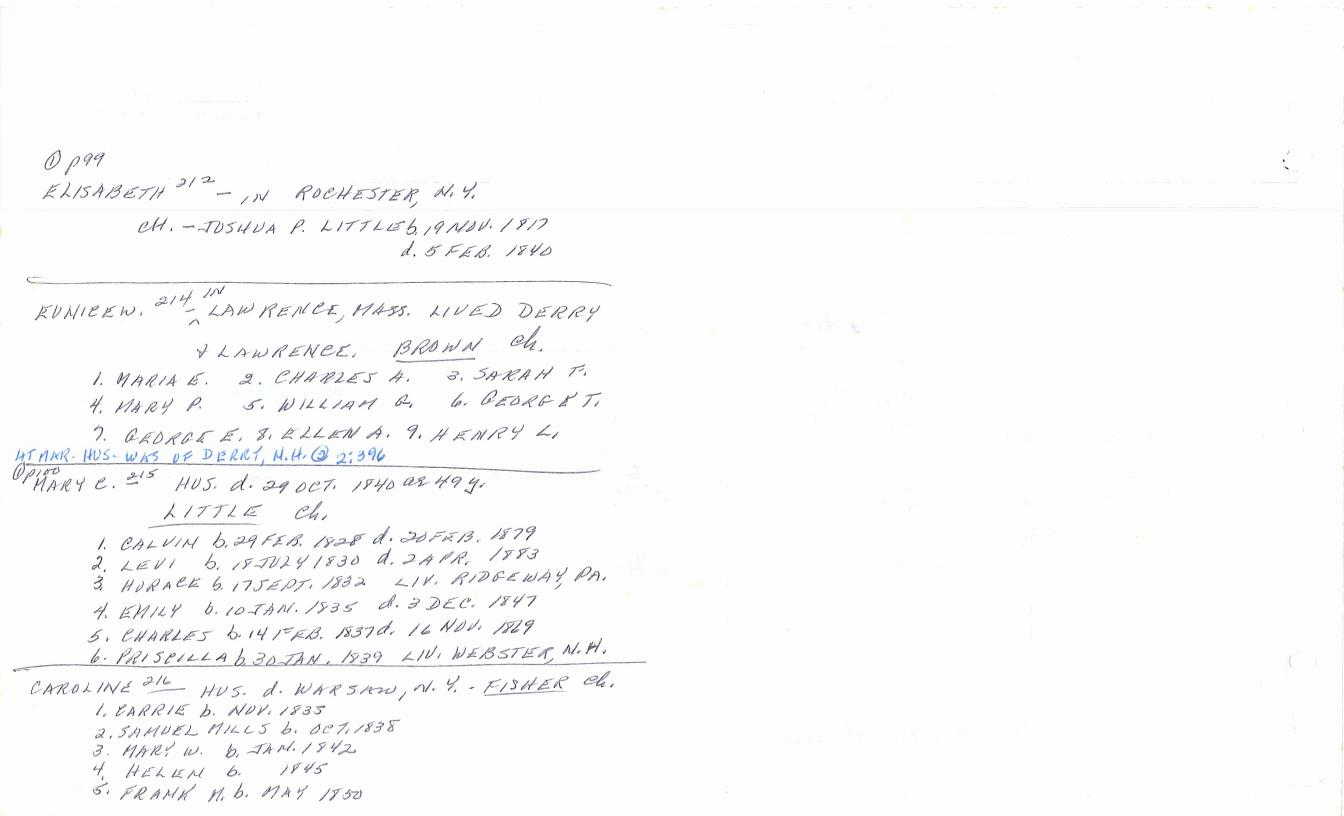 ① p99
ELISABETH 212 – IN ROCHESTER, N.Y.
CH. – JOSHUA P. LITTLE b. 19 NOV. 1817
d. 5 FEB. 1840
EUNICE W. 214 – IN LAWRENCE, MASS. LIVED DERRY
& LAWRENCE. BROWN Ch.
1. MARIA E. 2. CHARLES A. 3. SARAH F.
4. MARY P. 5. WILLIAM G. 6. GEORGE T.
7. GEORGE E. 8. ELLEN A. 9. HENRY L.
AT MAR. HUS. WAS OF DERRY, N.H. ② 2:396
① p100
MARY C. 215 HUS. d. 29 OCT. 1840 ae 49 y.
LITTLE Ch.
1. CALVIN b. 29 FEB. 1828 d. 20 FEB. 1879
2. LEVI b. 18 JULY 1830 d. 2 APR. 1883
3. HORACE b. 17 SEPT. 1832 LIV. RIDGEWAY, PA.
4. EMILY b. 10 JAN. 1835 d. 3 DEC. 1847
5. CHARLES b. 14 FEB. 1837 d. 16 NOV. 1869
6. PRISCILLA b. 30 JAN. 1839 LIV. WEBSTER, N.H.
CAROLINE 216 HUS. d. WARSAW, N.Y. - FISHER Ch.
1. CARRIE b. NOV. 1835
2. SAMUEL MILLS b. OCT. 1838
3. MARY W. b. JAN. 1842
4. HELEN b. 1845
5. FRANK M. b. MAY 1850